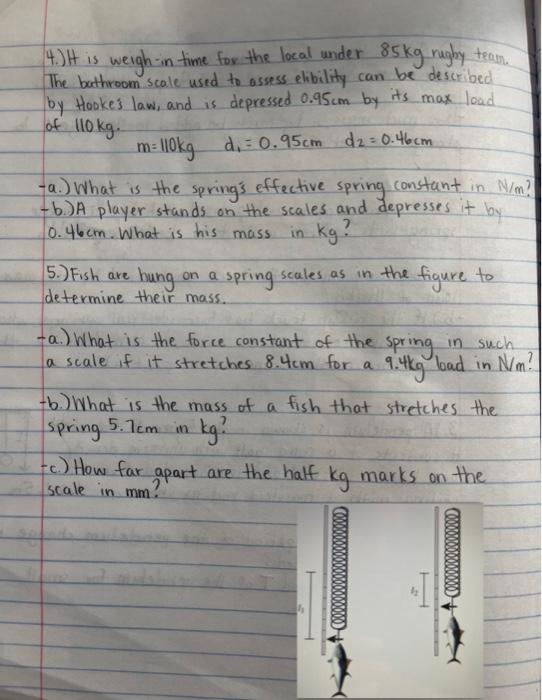 4.) It is weigh-in time for the local under 85kg rugby team.
The bathroom scale used to assess elibility can be described
by Hooke's law, and is depressed 0.95cm by its max load
of 110kg.
m=110kg d₁=0.95cm d₂=0.46cm
-a.) What is the spring's effective spring constant in N/m?
-b.) A player stands on the scales and depresses it by
0.46cm. What is his mass in kg?
5.) Fish are hung on a spring scales as in the figure to
determine their mass.
-a.) What is the force constant of the spring in such
a scale if it stretches 8.4cm for a 9.4kg load in N/m?
-b.) What is the mass of a fish that stretches the
spring 5.7cm in kg?
-c.) How far apart are the half kg marks on the
scale in mm?